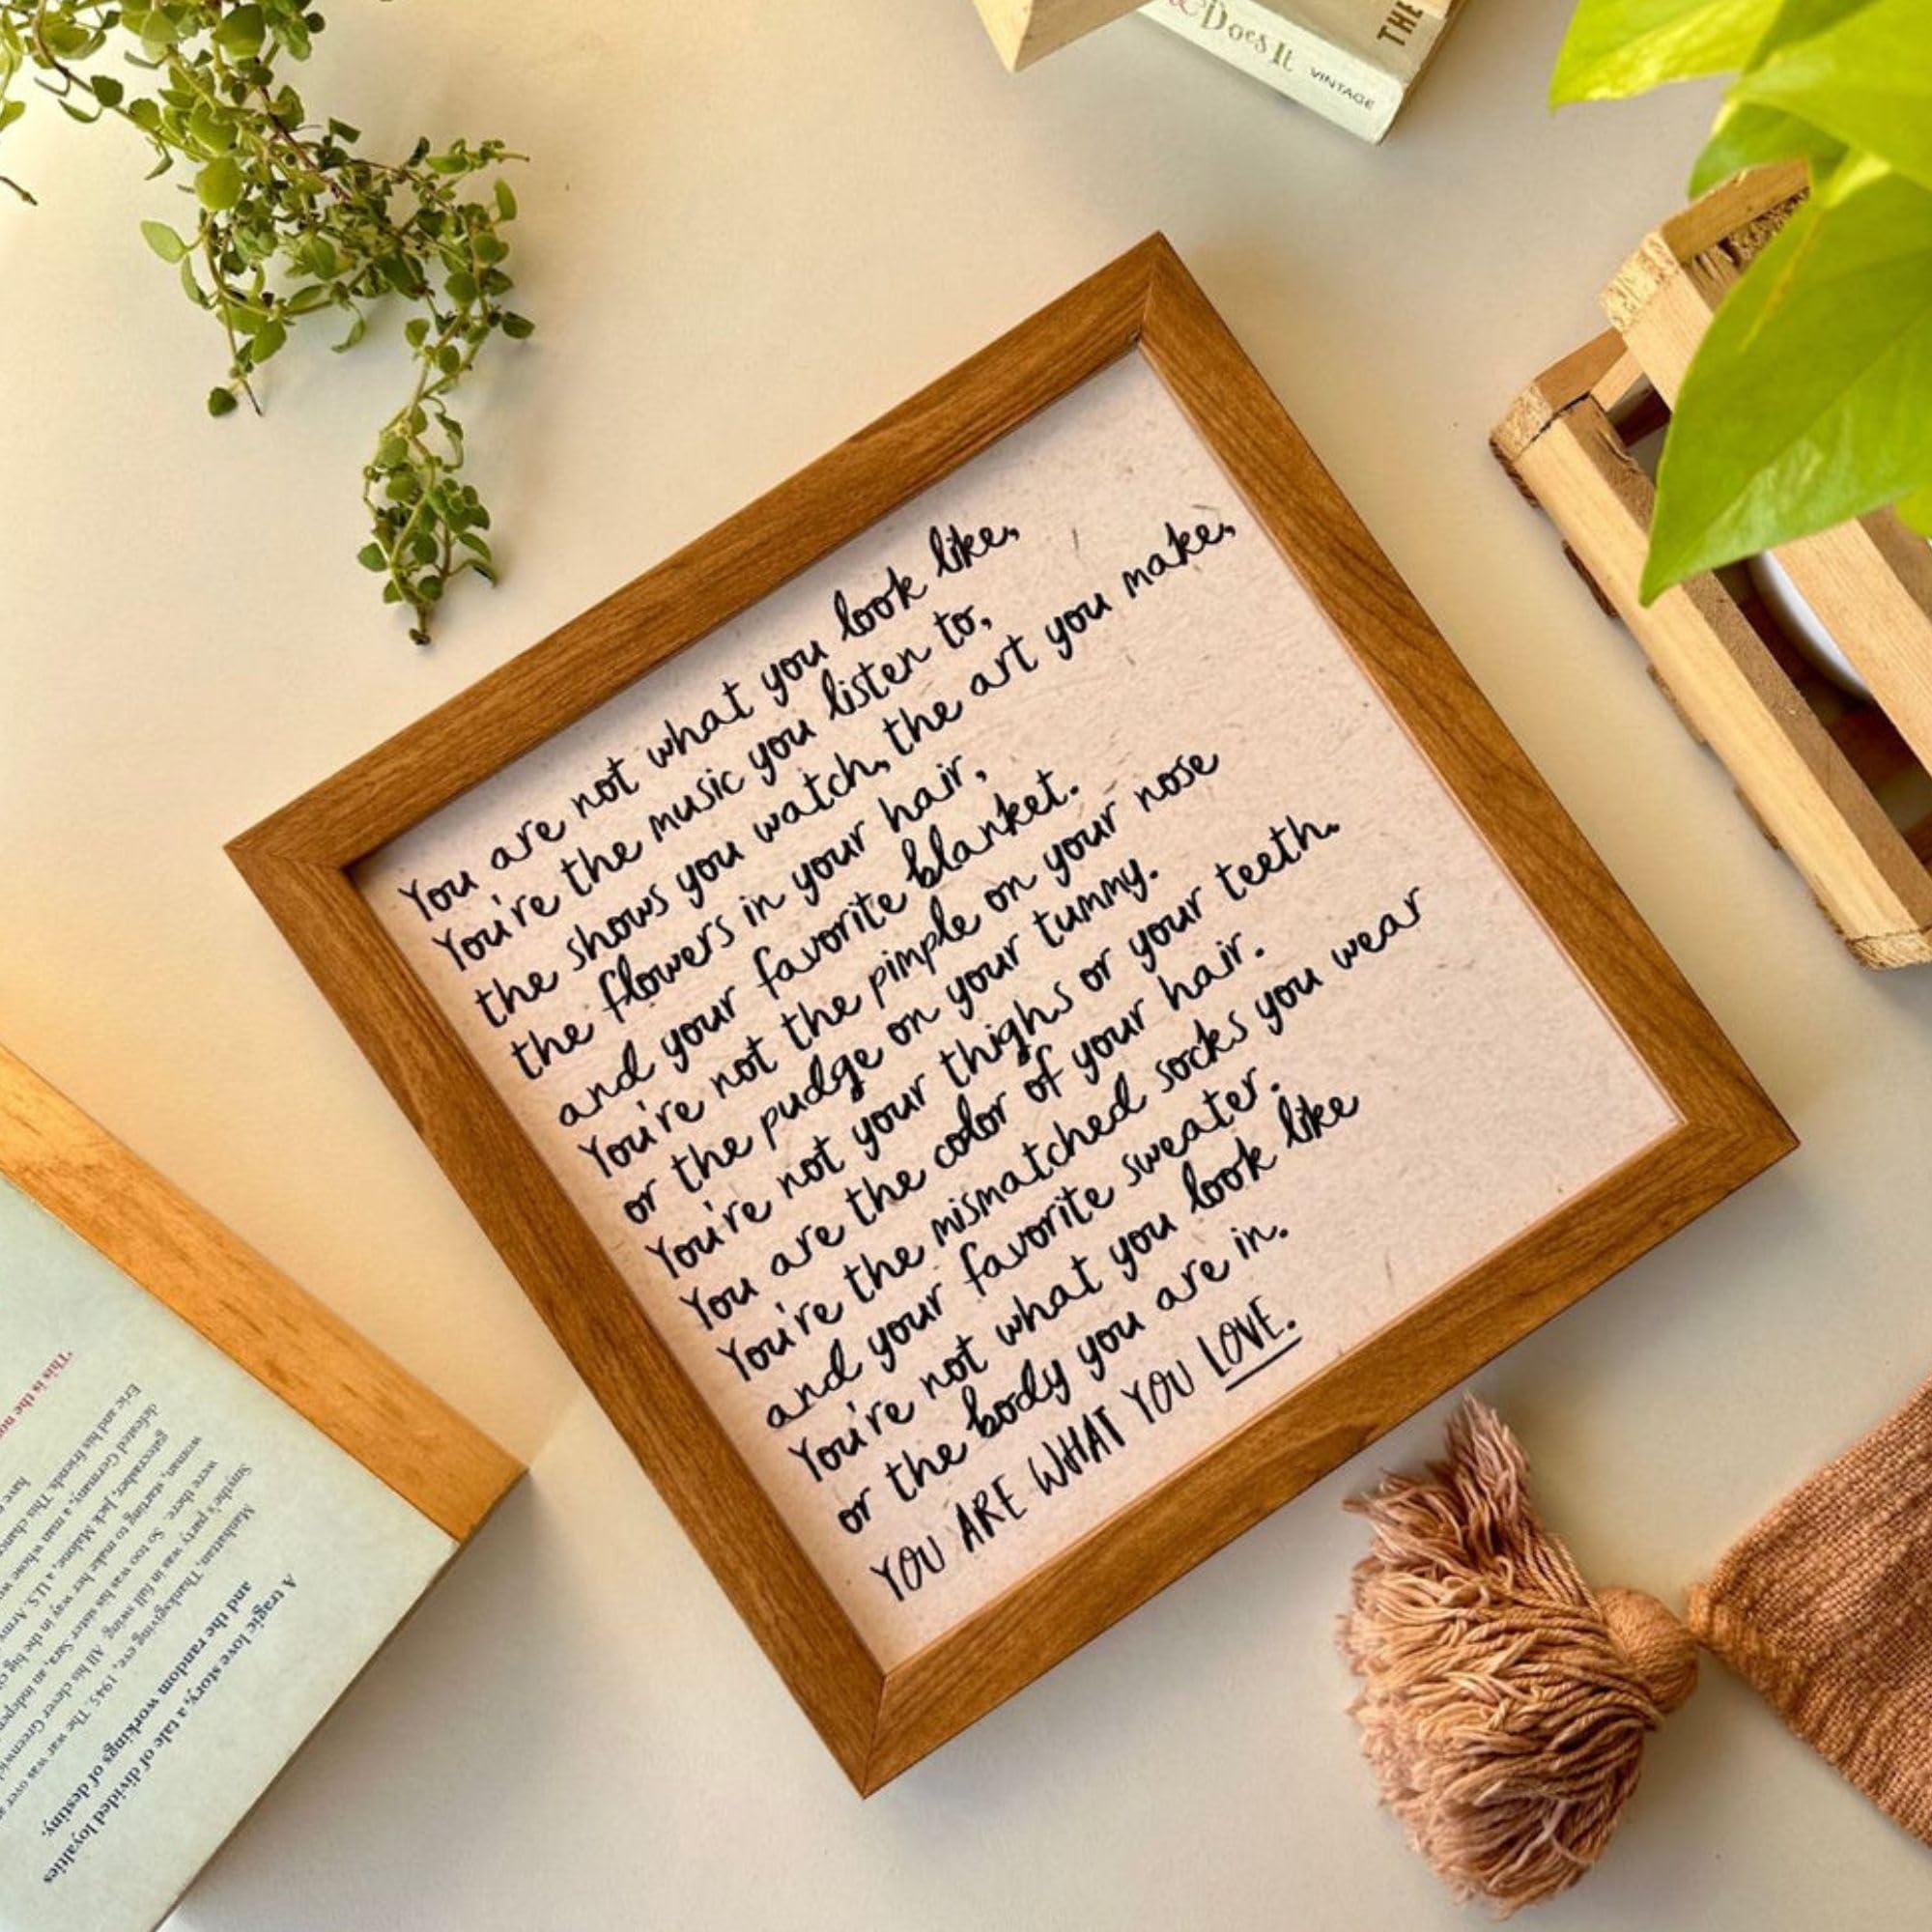 & Does It VINTAGE
THE
You are not what you look like,
You're the music you listen to,
the shows you watch, the art you make,
the flowers in your hair,
and your favorite blanket.
You're not the pimple on your nose
or the pudge on your tummy.
You're not your thighs or your teeth.
You are the color of your hair.
You're the mismatched socks you wear
and your favorite sweater.
You're not what you look like
or the body you are in.
YOU ARE WHAT YOU LOVE.
A tragic love story, a tale of divided loyalties
and the random workings of destiny.
Manhattan, Thanksgiving eve, 1945. The war was over
party was in full swing. All his clever
were there. So too was his sister Sara, an
woman, starting to make her way in the big
gatecrasher, Jack Malone, a U.S. Army
defeated Germany, a man whose
Eric and his friends. This chance
have
"This is the